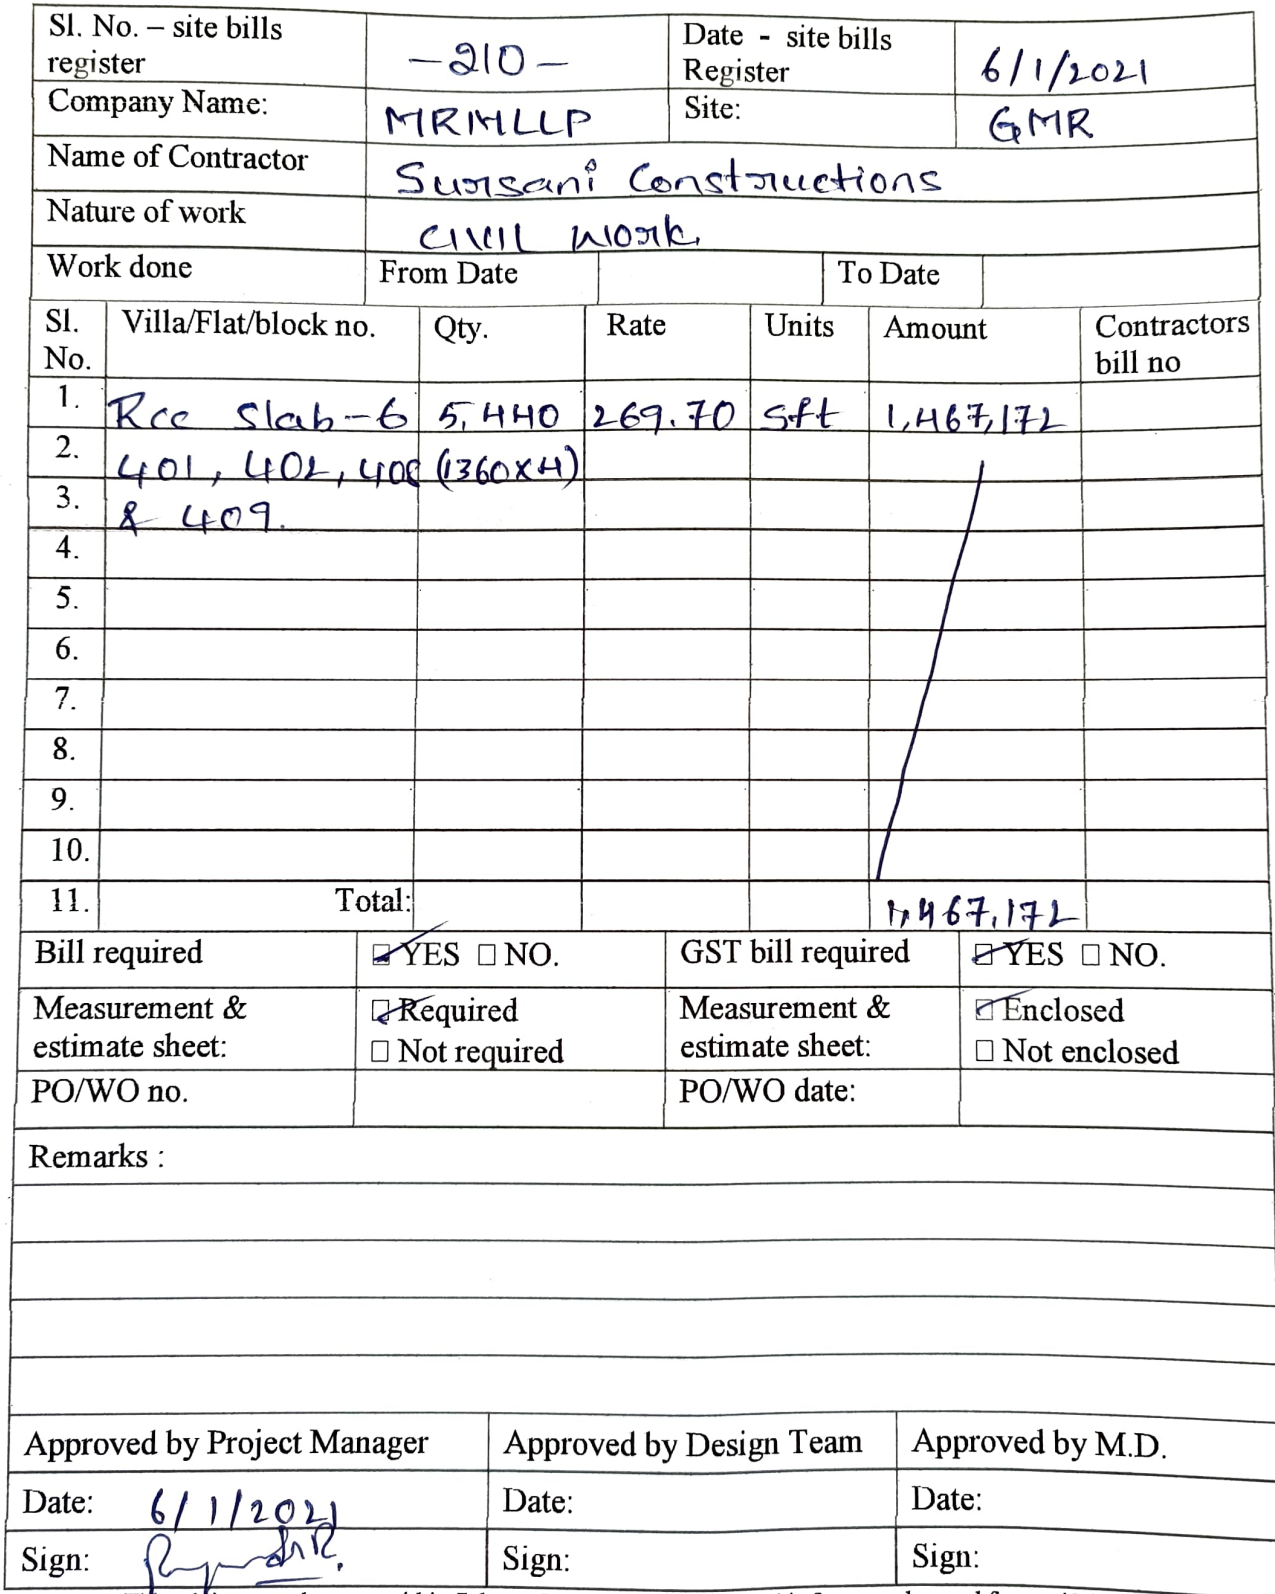 Sl. No. – site bills register -210- Date - site bills Register 6/1/2021
Company Name: MRMLLP Site: GMR
Name of Contractor Sursani Constructions
Nature of work Civil work
Work done From Date To Date
Sl. No. Villa/Flat/block no. Qty. Rate Units Amount Contractors bill no
1. Rcc Slab-6 5,440 269.70 Sft 1,467,172
2. 401, 402, 408 (1360x4)
3. & 409.
4.
5.
6.
7.
8.
9.
10.
11. Total: 1,467,172
Bill required ☑ YES ☐ NO. GST bill required ☑ YES ☐ NO.
Measurement & estimate sheet: ☑ Required ☐ Not required Measurement & estimate sheet: ☑ Enclosed ☐ Not enclosed
PO/WO no. PO/WO date:
Remarks :
Approved by Project Manager Approved by Design Team Approved by M.D.
Date: 6/1/2021 Date: Date:
Sign: Sign: Sign: